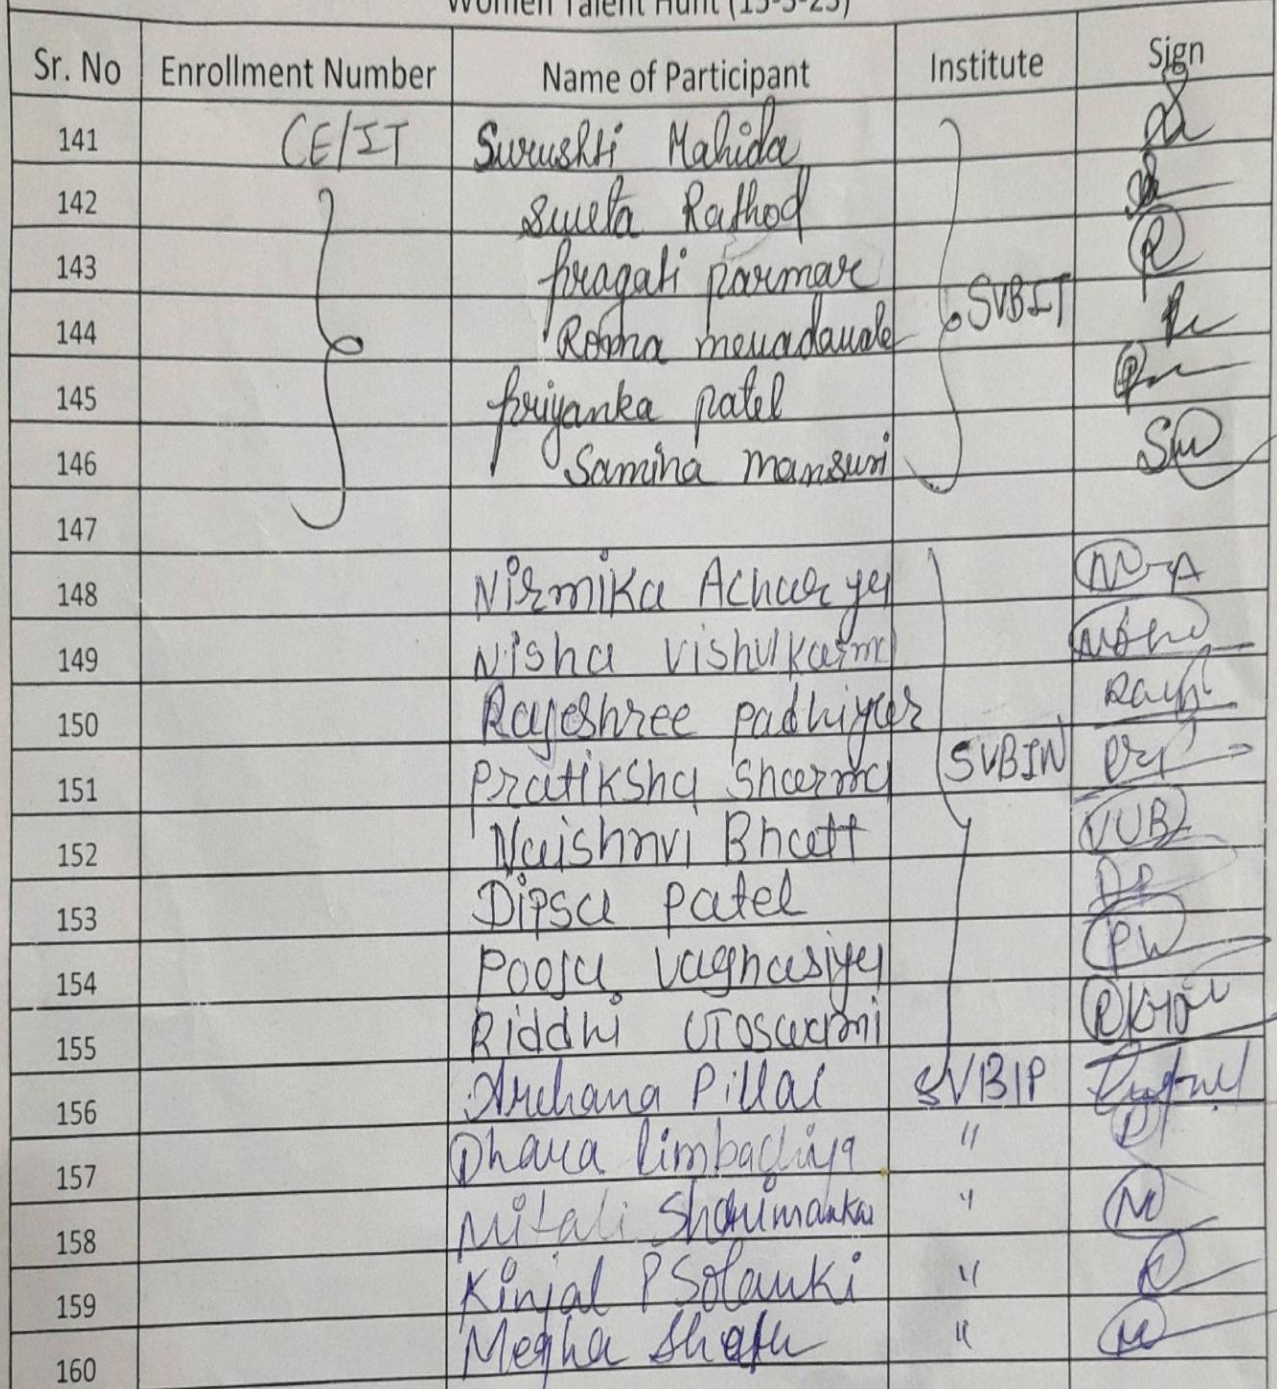 Women Talent Hunt (15-3-25)
Sr. No Enrollment Number Name of Participant Institute Sign
141 CE/IT Surushti Mahida
142 Sweta Rathod
143 Pragati Parmar
144 Roma mewadawala SVBIT
145 Priyanka Patel
146 Samina mansuri
147
148 Nirmika Acharya
149 Nisha Vishvkarma
150 Rajeshree Padhiyar
151 Pratiksha Sharma SVBIN
152 Vaishnvi Bhatt
153 Dipsa Patel
154 Pooja Vaghasiya
155 Riddhi Goswami
156 Archana Pillai SVBIP
157 Dhara limbachiya "
158 Mitali "
159 Kinjal P Solanki "
160 Megha Shah "